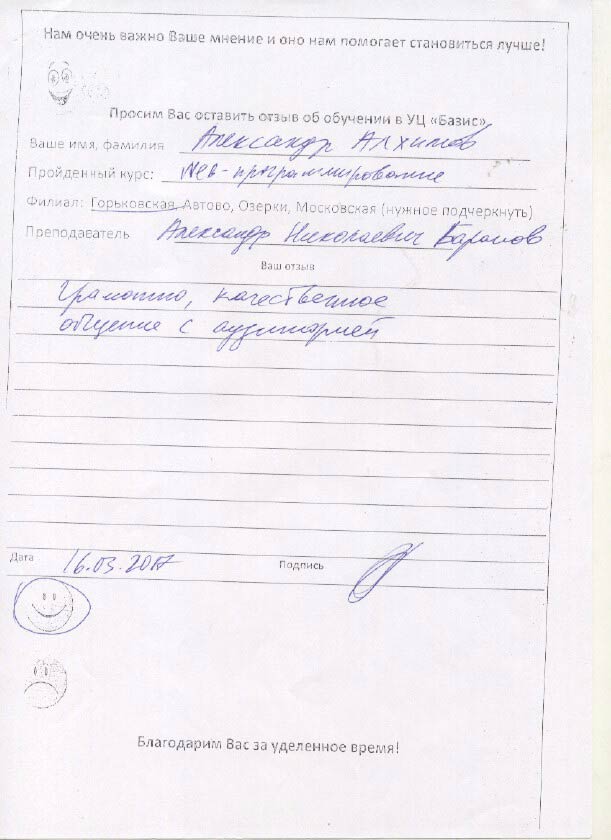 Нам очень важно Ваше мнение и оно нам помогает становиться лучше!
Просим Вас оставить отзыв об обучении в УЦ «Базис»
Ваше имя, фамилия Александр Алхимов
Пройденный курс: Web-программирование
Филиал: Горьковская, Автово, Озерки, Московская (нужное подчеркнуть)
Преподаватель Александр Николаевич Баранов
Ваш отзыв
Грамотно, качественное
общение с аудиторией
Дата 16.03.2017 Подпись
Благодарим Вас за уделенное время!